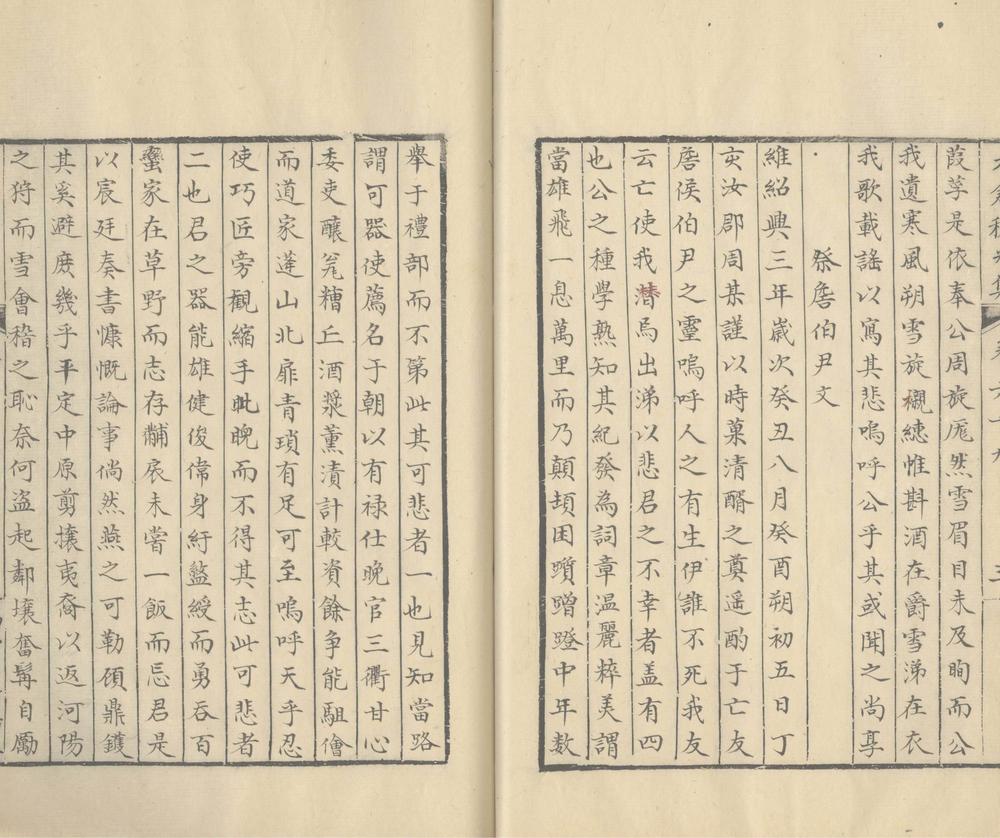 葭莩是依奉公周旋厖然雪眉目未及眴而公
我遺寒風朔雪旋櫬繐惟斟酒在爵雪涕在衣
我歌載謠以寫其悲嗚呼公乎其或聞之尚享
祭詹伯尹文
維紹興三年歲次癸丑八月癸酉朔初五日丁
亥汝郡周某謹以時菓清醑之奠遥酌于亡友
詹侯伯尹之靈嗚呼人之有生伊誰不死我友
云亡使我潸焉出涕以悲君之不幸者盖有四
也公之種學熟知其紀發為詞章温麗粹美謂
當雄飛一息萬里而乃顛頡困躓蹭蹬中年數
舉于禮部而不第此其可悲者一也見知當路
謂可器使薦名于朝以有禄仕晚官三衢甘心
委吏釀瓮糟丘酒漿薰漬計較資餘争能駔儈
而道家蓬山北扉青瑣有足可至嗚呼天乎忍
使巧匠旁觀縮手眦睨而不得其志此可悲者
二也君之器能雄健俊偉身紆藍綬而勇吞百
蠻家在草野而志存黼扆未嘗一飯而忌君是
以宸廷奏書慷慨論事倘然燕之可勒碩鼎鑊
其奚避庻幾乎平定中原剪攘夷裔以返河陽
之狩而雪會稽之恥奈何盗起鄰壤奮髯自勵